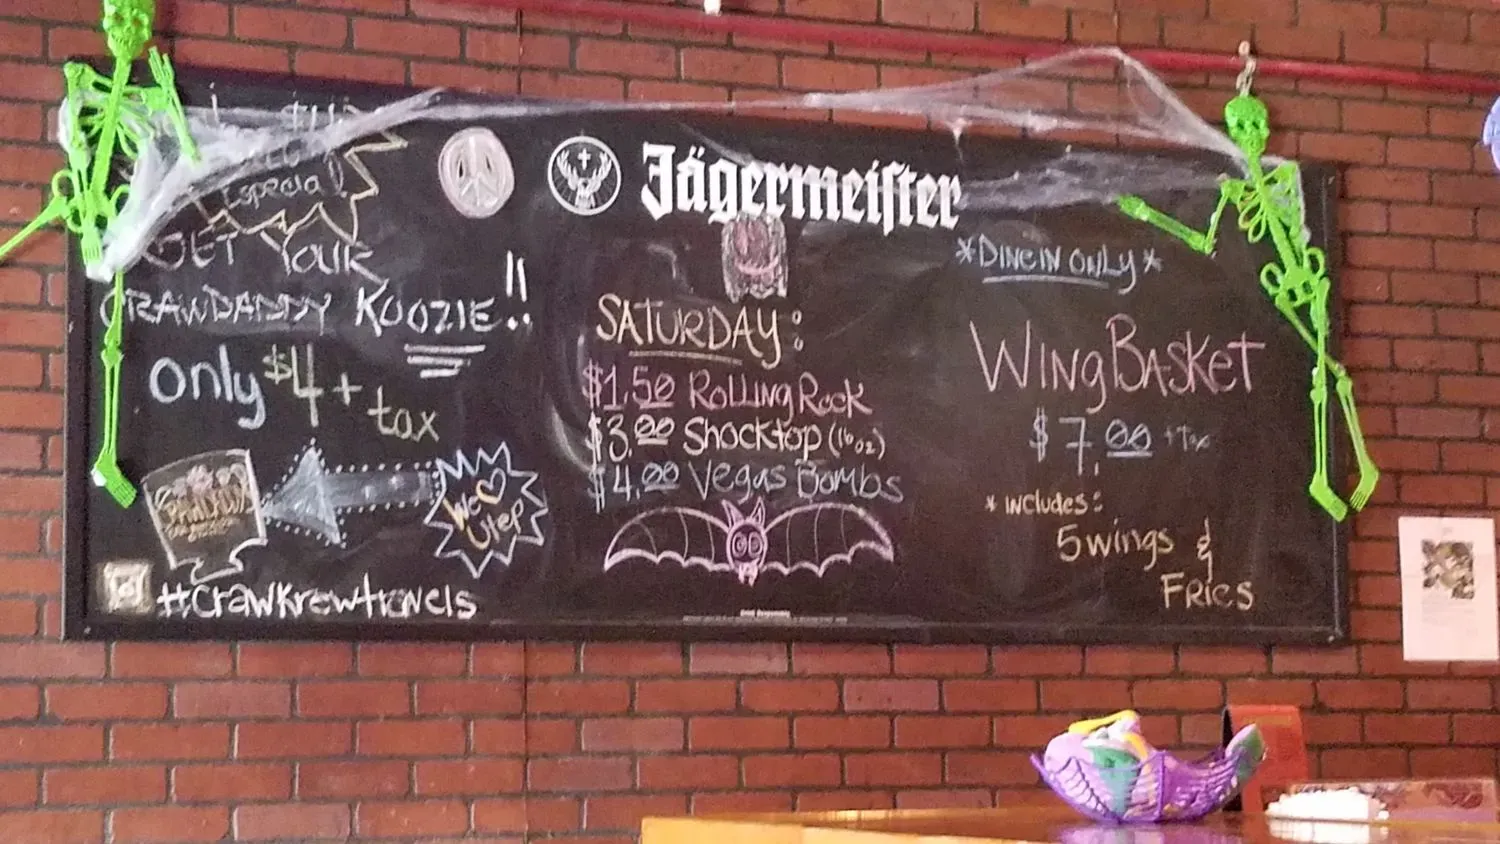 Special
GET YOUR
CRAWDADDY KOOZIE!!
only $4 + tax
We ♡
Utep
#crawkrewtravels
Jägermeister
SATURDAY:
$1.50 ROLLING ROCK
$3.00 Shocktop (16oz)
$4.00 Vegas Bombs
*DINE IN ONLY*
WING BASKET
$7.00 + Tax
* INCLUDES:
5 wings &
FRIES